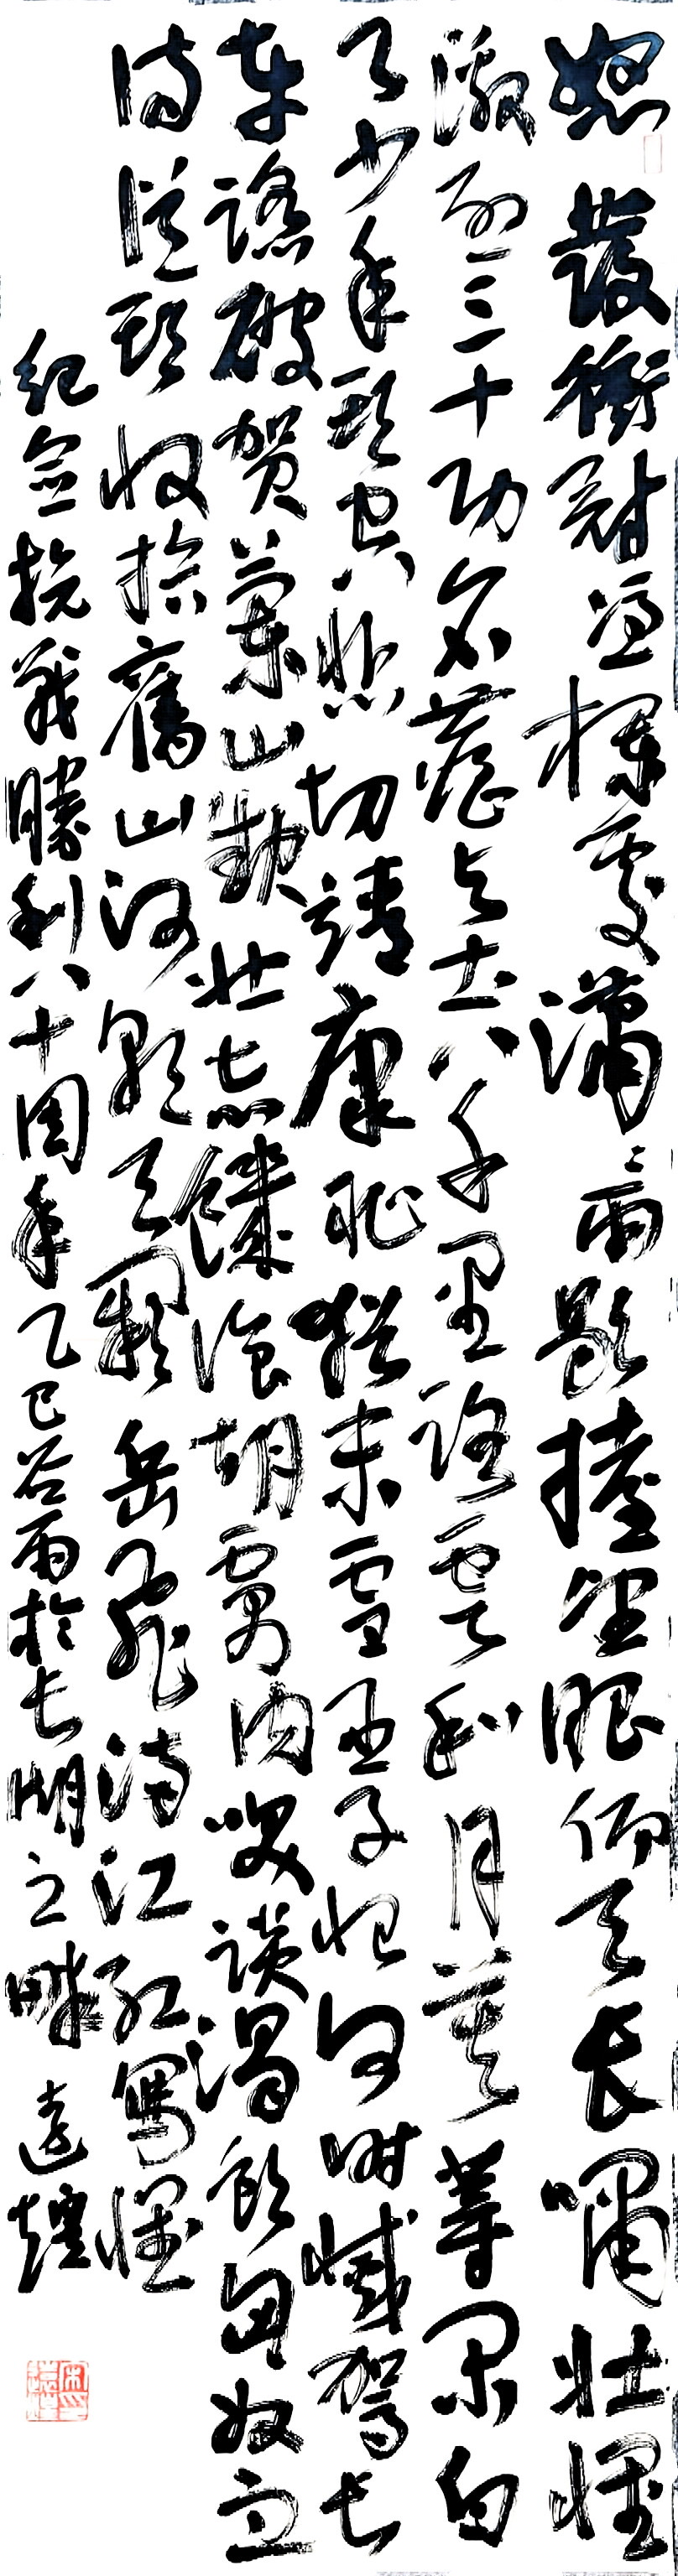 怒髮衝冠憑欄處瀟〻雨歇擡望眼仰天長嘯壯懷
激烈三十功名塵與土八千里路雲和月莫等閑白
了少年頭空悲切靖康恥猶未雪臣子恨何時憾駕長
車踏破贺蘭山缺壯志饑湌胡虜肉笑談渴飲匈奴血
待從頭收拾舊山河朝天闕岳飛满江红寫懷
紀念抗戰勝利八十周年乙巳谷雨於長湖之畔遠煌